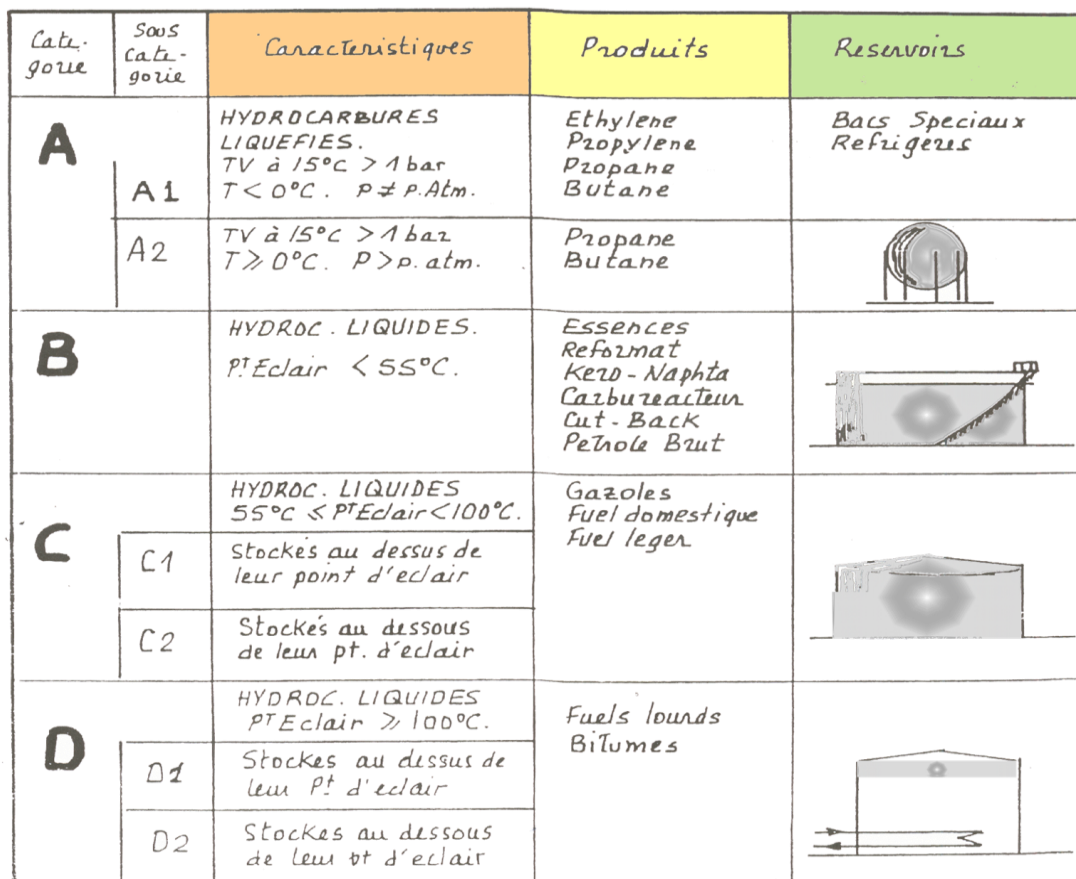 Caté-
gorie
Sous
Caté-
gorie
Caracteristiques
Produits
Reservoirs
A
HYDROCARBURES
LIQUEFIES.
A1
TV à 15°C > 1 bar
T < 0°C. P ≠ P.Atm.
Ethylene
Propylene
Propane
Butane
Bacs Speciaux
Refrigeres
A2
TV à 15°C > 1 bar
T ⩾ 0°C. P > p. atm.
Propane
Butane
B
HYDROC. LIQUIDES.
PT Eclair < 55°C.
Essences
Reformat
Kero-Naphta
Carbureacteur
Cut-Back
Petrole Brut
C
HYDROC. LIQUIDES
55°C ⩽ PT Eclair < 100°C.
Gazoles
Fuel domestique
Fuel leger
C1
Stockés au dessus de
leur point d'eclair
C2
Stockés au dessous
de leur pt. d'eclair
D
HYDROC. LIQUIDES
PT Eclair ⩾ 100°C.
Fuels lourds
Bitumes
D1
Stockes au dessus de
leur Pt d'eclair
D2
Stockes au dessous
de leur pt d'eclair